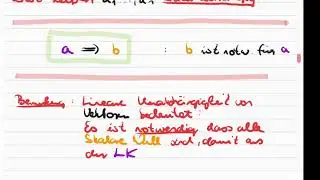 a ⟹ b : b ist notw für a
Bemerkung : Lineare Unabhängigkeit von
Vektoren bedeutet:
Es ist notwendig dass alle
Skalare Null sind, damit aus
der LK